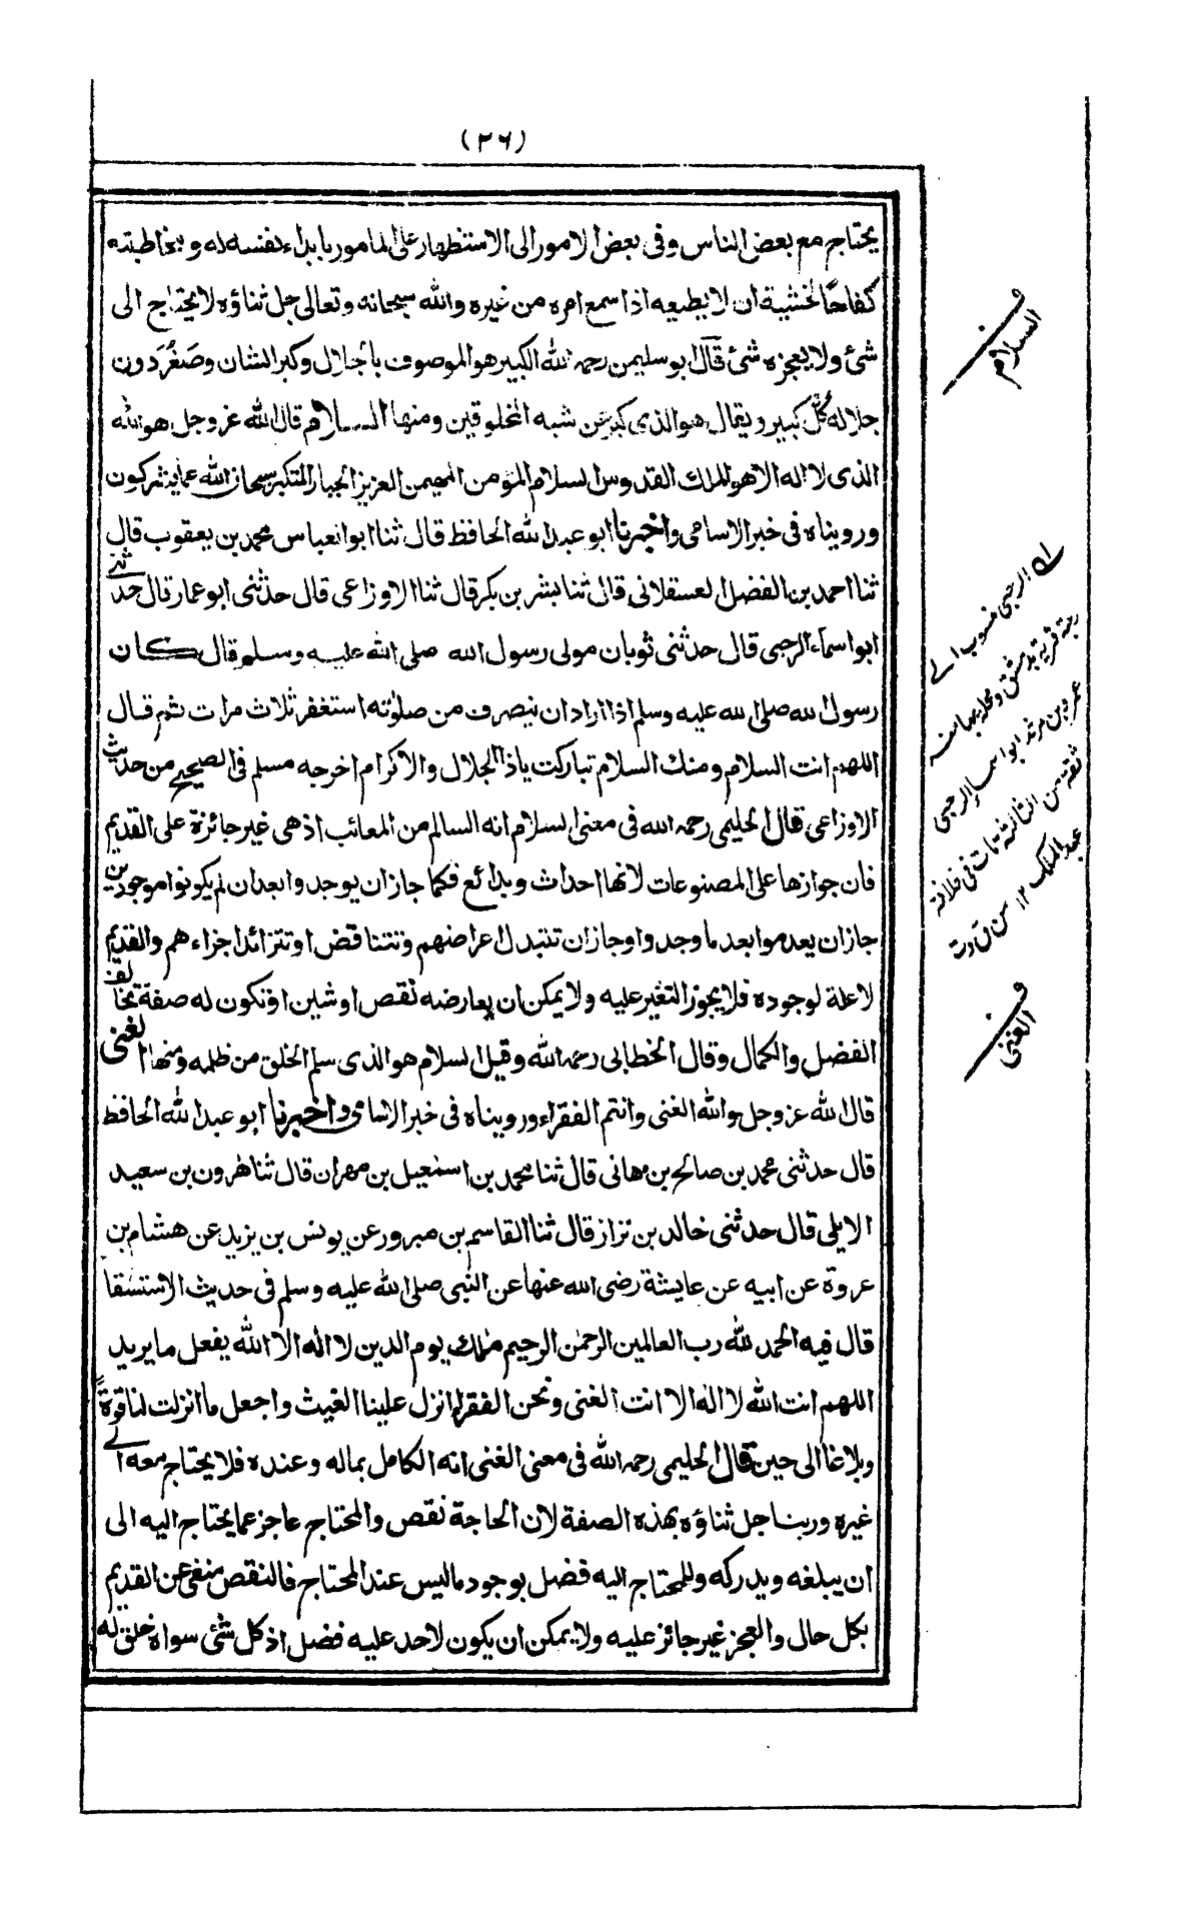 (٢٦)
يحتاج مع بعض الناس وفى بعض الامور الى الاستظهار على المامور بابداء نفسه له و بمخاطبته
كفاحًا لخشية ان لا يطيعه اذا سمع امره من غيره والله سبحانه وتعالى جل ثناؤه لا يحتاج الى
شئ ولا يعجزه شئ قال ابو سليمن رحمه الله الكبير هو الموصوف بالجلال وكبر الشان وصَغُرَ دون
جلاله كُلُّ كبير ويقال هو الذى كبر عن شبه المخلوقين ومنها السلام قال الله عز وجل هو الله
الذى لا اله الا هو الملك القدوس السلام المؤمن المهيمن العزيز الجبار المتكبر سبحان الله عما يشركون
ورويناه فى خبر الاسامى واخبرنا ابو عبد الله الحافظ قال ثنا ابو العباس محمد بن يعقوب قال
ثنا احمد بن الفضل العسقلانى قال ثنا بشر بن بكر قال ثنا الاوزاعى قال حدثنى ابو عمار قال حدثنى
ابو اسماء الرحبى قال حدثنى ثوبان مولى رسول الله صلى الله عليه وسلم قال كان
رسول الله صلى الله عليه وسلم اذا اراد ان ينصرف من صلوته استغفر ثلاث مرات ثم قال
اللهم انت السلام ومنك السلام تباركت ياذا الجلال والاكرام اخرجه مسلم فى الصحيح من حديث
الاوزاعى قال الحليمى رحمه الله فى معنى السلام انه السالم من المعائب اذ هى غير جائزة على القديم
فان جوازها على المصنوعات لانها احداث وبدائع فكما جاز ان يوجدوا بعد ان لم يكونوا موجودين
جاز ان يعدموا بعد ما وجدوا وجاز ان تتبدل اعراضهم وتتناقض او تتزائد اجزاءهم والقديم
لا علة لوجوده فلا يجوز التغير عليه ولا يمكن ان يعارضه نقص او شين او تكون له صفة تخالف
الفضل والكمال وقال الخطابى رحمه الله وقيل السلام هو الذى سلم الخلق من ظلمه ومنها الغنى
قال الله عز وجل والله الغنى وانتم الفقراء ورويناه فى خبر الاسامى واخبرنا ابو عبد الله الحافظ
قال حدثنى محمد بن صالح بن هانى قال ثنا محمد بن اسمعيل بن مهران قال ثنا هرون بن سعيد
الايلى قال حدثنى خالد بن نزار قال ثنا القاسم بن مبرور عن يونس بن يزيد عن هشام بن
عروة عن ابيه عن عايشة رضى الله عنها عن النبى صلى الله عليه وسلم فى حديث الاستسقا
قال فيه الحمد لله رب العالمين الرحمن الرحيم ملك يوم الدين لا اله الا الله يفعل ما يريد
اللهم انت الله لا اله الا انت الغنى ونحن الفقراء انزل علينا الغيث واجعل ما انزلت لنا قوةً
وبلاغا الى حين قال الحليمى رحمه الله فى معنى الغنى انه الكامل بماله وعنده فلا يحتاج معه الى
غيره وربنا جل ثناؤه بهذه الصفة لان الحاجة نقص والمحتاج عاجز عما يحتاج اليه الى
ان يبلغه ويدركه وللمحتاج اليه فضل بوجود ماليس عند المحتاج فالنقص منفى عن القديم
بكل حال والعجز غير جائز عليه ولا يمكن ان يكون لاحد عليه فضل اذ كل شئ سواه خلق له
السلام
له الرحبى منسوب الى
رحبة قرية بدمشق ومحلة بها اسمه
عمرو بن مرثد ابو اسماء الرحبى
ثقة من الثالثة مات فى خلافة
عبد الملك ١٢
الغنى